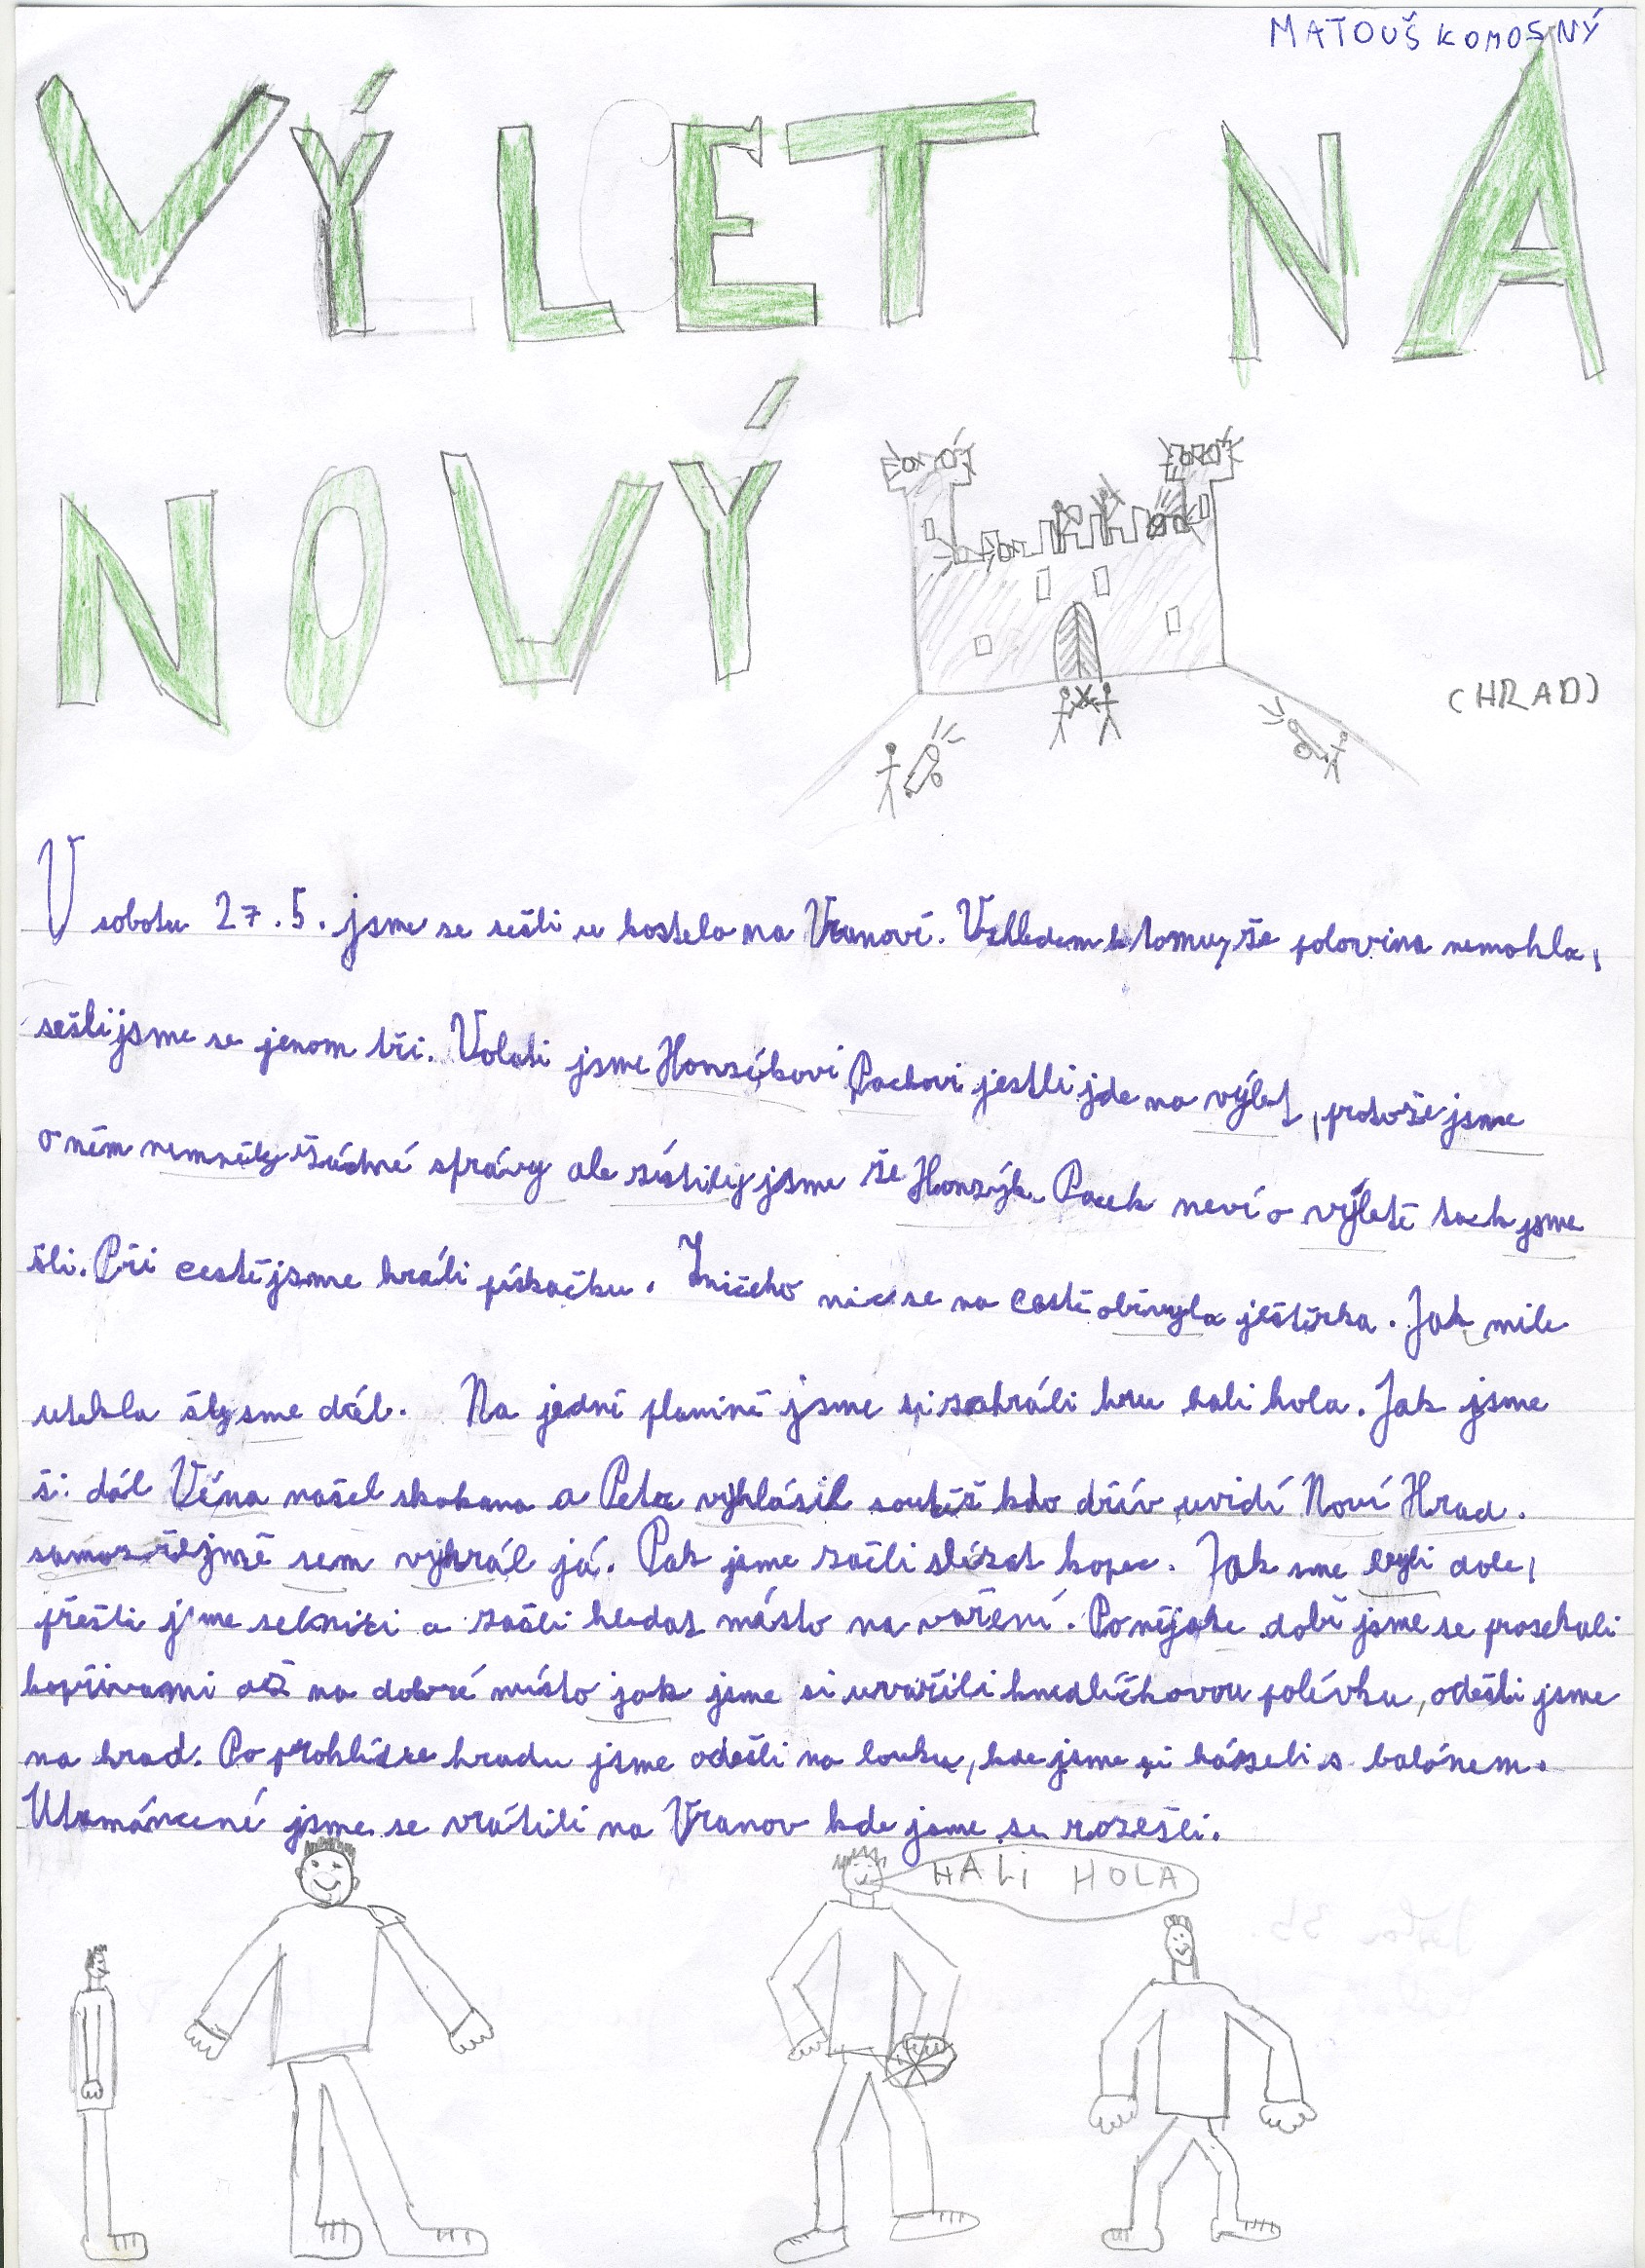 MATOUŠ KOMOSNÝ
VÝLET NA
NOVÝ
(HRAD)
V sobotu 27.5. jsme se sešli u kostela na Vranově. Vzhledem k tomu, že polovina nemohla,
sešli jsme se jenom tři. Volali jsme Honzíkovi Packovi jestli jde na výlet, protože jsme
o něm nemněly žádné správy ale zístilij jsme že Honzýk Pacek neví o výletě tack jsme
šli. Při cestě jsme hráli pískačku. Zničeho nic se na cestě obievyla ještěrka. Jak mile
utekla šly sme dál. Na jedné planině jsme si zahráli hru hali hola. Jak jsme
ši dál Véna našel skokana a Peta vyhlásil soutěž kdo dřív uvidí Noví Hrad.
samozřejmě sem vyhrál já. Pak jsme začli slézat kopec. Jak sme byli dole,
přešli jsme selnici a začli hledat místo na vaření. Po nějake době jsme se prosekali
kopřivami až na dobré místo jak jsme si uvařili knedlíčkovou polévku, odešli jsme
na hrad. Po prohlídce hradu jsme odešli na louku, kde jsme si házeli s balónem.
Utamáncené jsme se vrátili na Vranov kde jsme se rozešli.
HALI HOLA